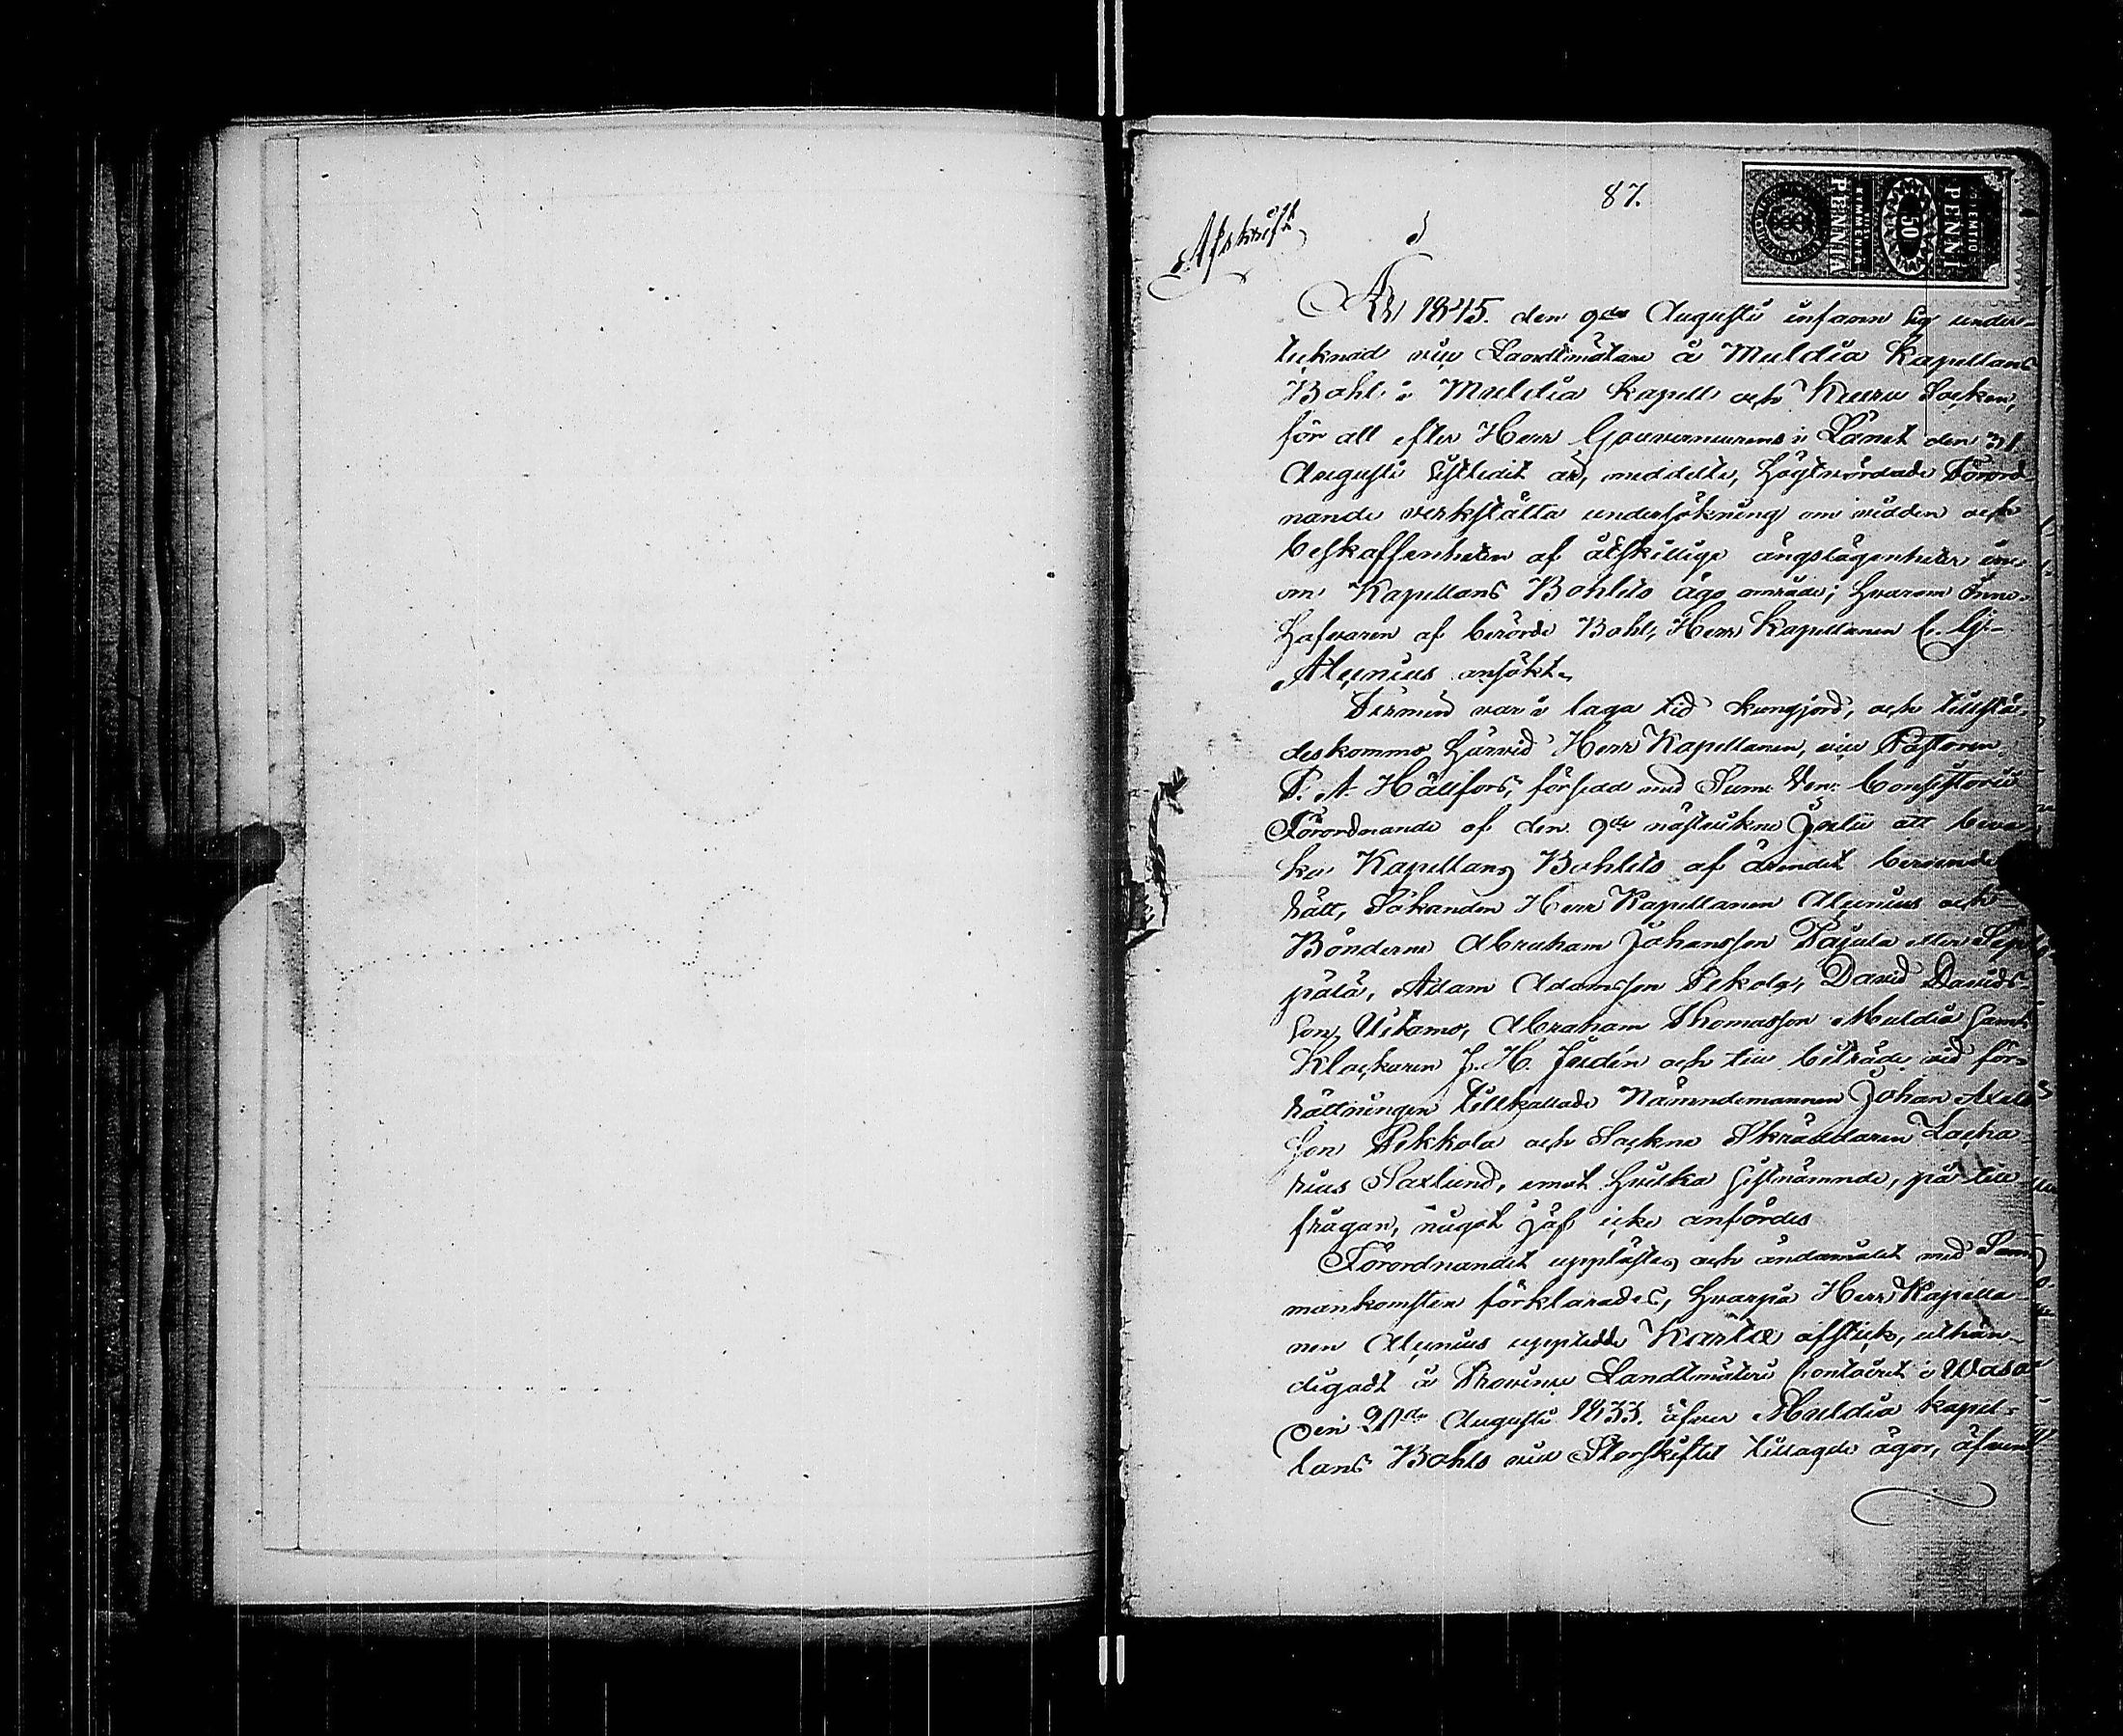 87.
Afskrift
FEMTIO
PENNI
50
PENNIÄ
År 1845 den 9de Augusti infann sig under-
tecknad vice Landtmätare å Muldia Kapellans
Bohl i Muldia Kapell och Kuuru Socken,
för att efter Herr Gouverneurens i Länet den 31
Augusti sistledit år, meddelte, högtvördade Förord-
nande verkställa undersökning om vidden och
beskaffenheten af åtskillige ängslägenheter in-
om Kapellans Bohlets ägo område; hvarom Inne-
hafvaren af berörde Bohl, Herr Kapellanen C. G.
Alcenius ansökt.
Termin var i laga tid kungjord, och tillstä-
deskommo härvid Herr Kapellanen, vice Pastoren
P. A. Hällfors, försedd med Sum. Ven. Consistorii
Förordnande af den 9de nästvikne Julii att beva-
ka Kapellans Bohlets af ärendet beroende
rätt, Sökanden Herr Kapellanen Alcenius och
Bönderne Abraham Johansson Pajula eller Sep-
pälä, Adam Adamsson Pekola, David Davids-
son Uitamo, Abraham Thomasson Muldia samt
Klockaren J. H. Jurdin och till biträde vid för-
rättningen tillkallade Nämndemannen Johan Mats
son Pekkola och Sockne Skräddaren Zacha
rias Saxlund, emot hvilka sistnämnde, på till
frågan, något jäf icke anfördes
Förordnandet upplästes och ändamålet med Sam
mankomsten förklarades, hvarpå Herr Kapella-
nen Alcenius uppteedde Karta afstick, uthän-
digadt å Provincie Landtmäteri Contoiret i Wasa
den 20de Augusti 1833. öfver Muldia kapel-
lans Bohls vid Storskiftet tillagde ägor, äfven